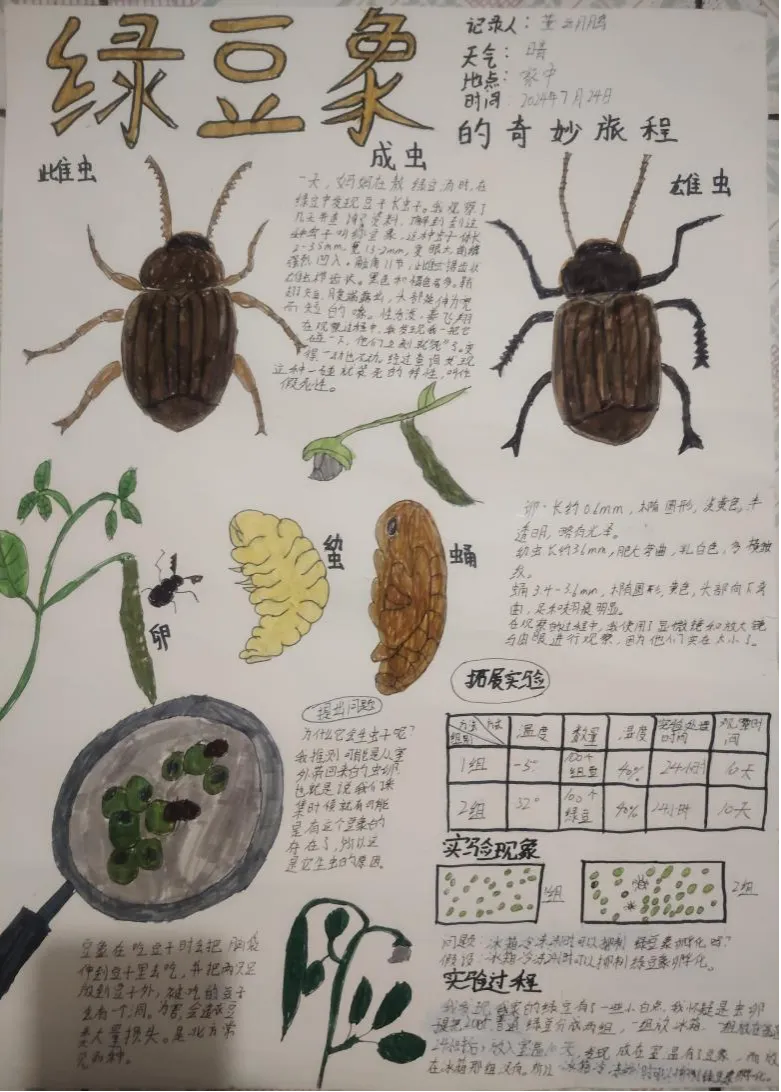 绿豆象
的奇妙旅程
记录人：
天气：晴
地点：家中
时间：2024年7月24日
雌虫
成虫
雄虫
一天，妈妈在煮绿豆汤时，在
绿豆中发现豆子长虫子。我观察了
几天并查阅了资料，了解到到这
种虫子叫绿豆象，这种虫子体长
2-3.5mm，宽1.3-2mm，复眼大
凹入。触角11节，雌虫锯齿状
雄虫栉齿状。
在观察过程中，我发现我一把它
碰一下，他们立刻就"死"了。变
得一动也不动。经过查阅发现
这种一碰就装死的特性，叫作
假死性。
幼
蛹
卵
卵：长约0.6mm，椭圆形，淡黄色，半
透明，略有光泽。
幼虫长约3.6mm，肥大弯曲，乳白色，多横皱
纹。
蛹3.4-3.6mm，椭圆形，黄色，头部向下弯
曲，足和翅痕明显。
在观察的过程中，我使用了显微镜和放大镜
与肉眼进行观察，因为他们实在太小了。
提出问题
为什么它会生虫子呢？
我推测可能是从室
外带回来的虫卵，
也就是说我们采
集时候就有可能
是有这个豆象的
存在了，所以这
是它生虫的原因。
拓展实验
方法 组别 温度 数量 湿度 实验处理时间 观察时间
1组 -5° 100个绿豆 40% 24小时 10天
2组 32° 100个绿豆 90% 24小时 10天
实验现象
1组
2组
问题：冰箱冷冻24小时可以抑制绿豆象孵化吗？
假设：冰箱冷冻24小时可以抑制绿豆象孵化。
实验过程
我发现我家的绿豆有了一些小白点，我怀疑是虫卵
我把 绿豆分成两组，一组放冰箱，一组放在室温
24小时后，放入室温10天，发现放在室温有了豆象，而放
在冰箱那组没有，所以冰箱冷冻24小时可以抑制绿豆象孵化。
豆象在吃豆子时会把胸腹
伸到豆子里去吃，并把两只足
放到豆子外，被吃的豆子
会有一个洞。为害会造成豆
类大量损失。是北方常
见的种。